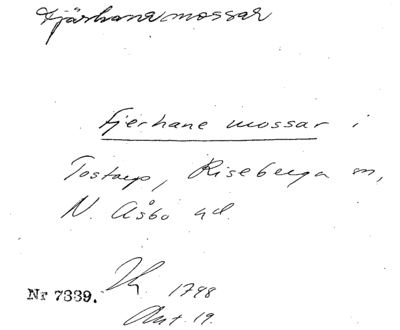 Fjärhanamossar
Fjerhane mossar i
Tostarp, Riseberga sn,
N. Åsbo hd.
1748
Nr 7339.
Akt. 19.